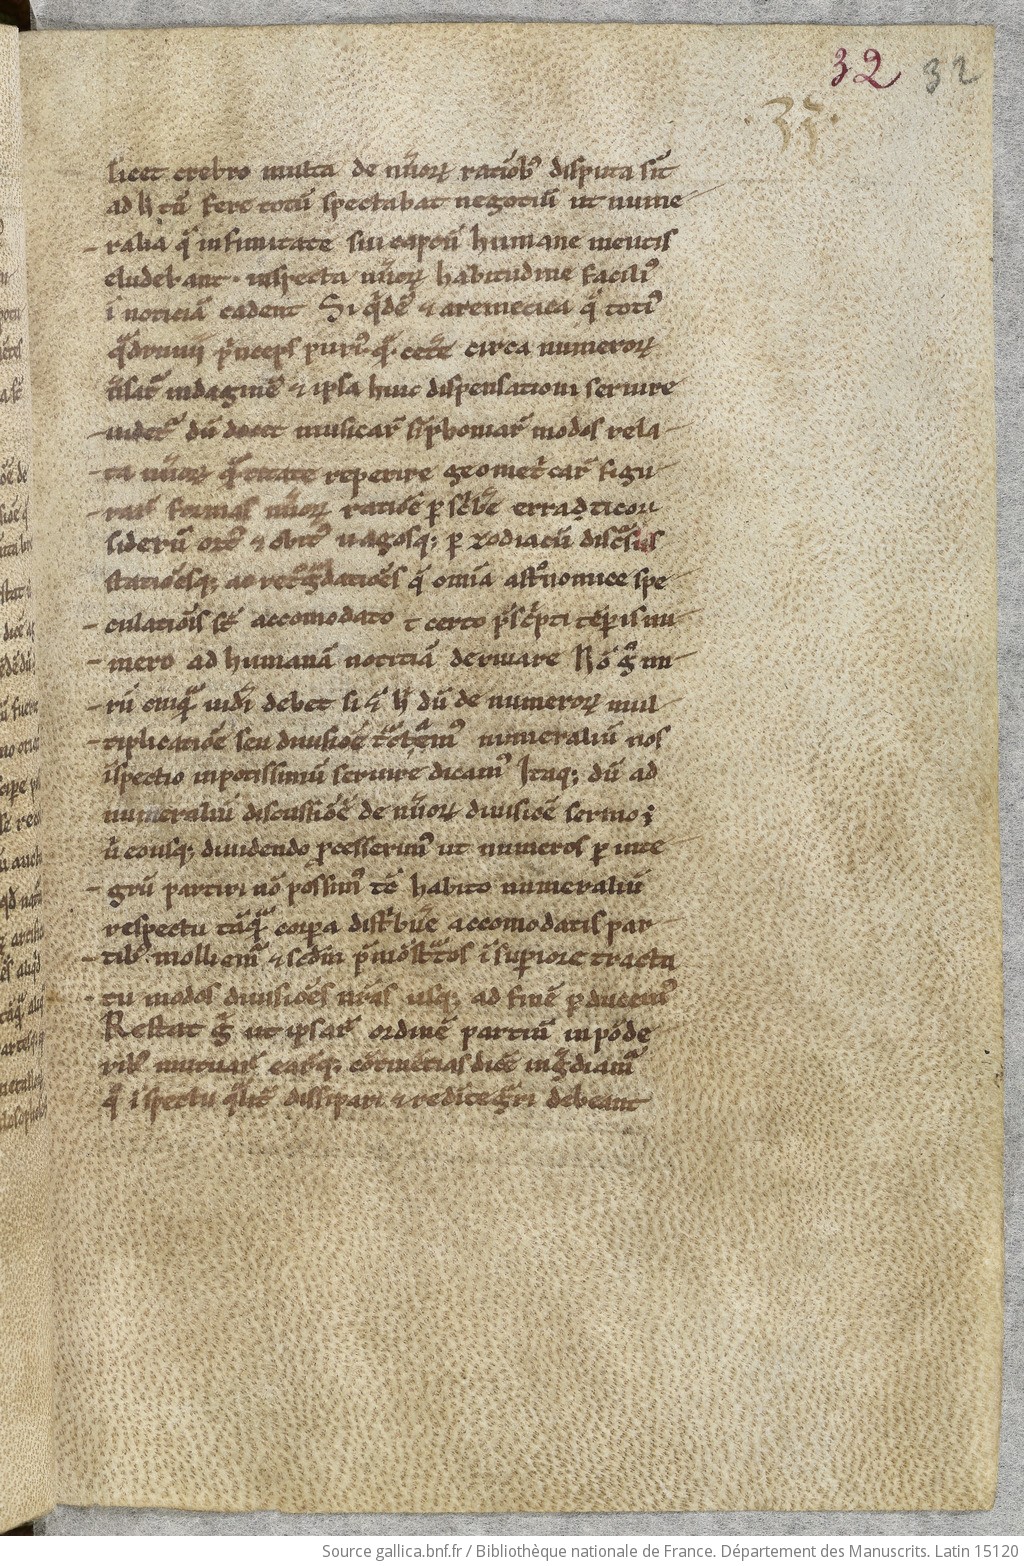 32 32
licet crebro multa de nūorꝝ ratiōibꝰ disputa sīt
ad h̄ tū fere totū spectabat negotiū ut nume
ralia q̄ infinitate sui captū humane mentis
eludebant· inspecta nūorꝝ habitudine faciliꝰ
ī noticiā cadent Si q̇dē ⁊ aremetica q̄ totiꝰ
q̇druuii p̄nceps cet̄e circa numerorꝝ
indaginē ⁊ ipsa huic dispensationi seruire
uidet᷑ dū docet musicar̄ modos rela
ta nūorꝝ q̄titate reperire geomet̄car̄ figu
rar̄ formas nūorꝝ ratiōe ꝑ erraticorū
siderū ortꝰ ⁊ obitꝰ uagosq; ꝑ zodiacū
statiōesq; ac q̄ omīa ast̄nomice spe
culatiōis sē accomodato t certo tēporis nu
mero ad humanā notitiā deriuare Nō ḡ mi
rū cuiq̄ uid̄i debet si ⁊ h̄ dū de numerorꝝ mul
tiplicatiōe seu diuisiōe numeraliū nos
īspectio inpotissimū seruire dicamꝰ Itaq; dū ad
numeraliū discussiōē de nūorꝝ diuisiōe sermo
ū eousq; diuidendo ꝓcesserimꝰ ut numeros ꝑ inte
grū partiri nō possimꝰ tē habito numeraliū
respectu tāq̄ corpa dist̄bue accomodatis par
tibꝰ molliemꝰ ⁊ scdm p̄mōst̄tos ī supiore tracta
tu modos diuisiōes nr̄as usq; ad finē ꝓducemꝰ
Restat ḡ ut ipsar̄ ordinē partiū inpōde
ribꝰ mutuar̄ earūq; dic̄e
q̄ īspectu q̄lit̄ dissipari ⁊ redītegr̄i debeant
Source gallica.bnf.fr / Bibliothèque nationale de France. Département des Manuscrits. Latin 15120